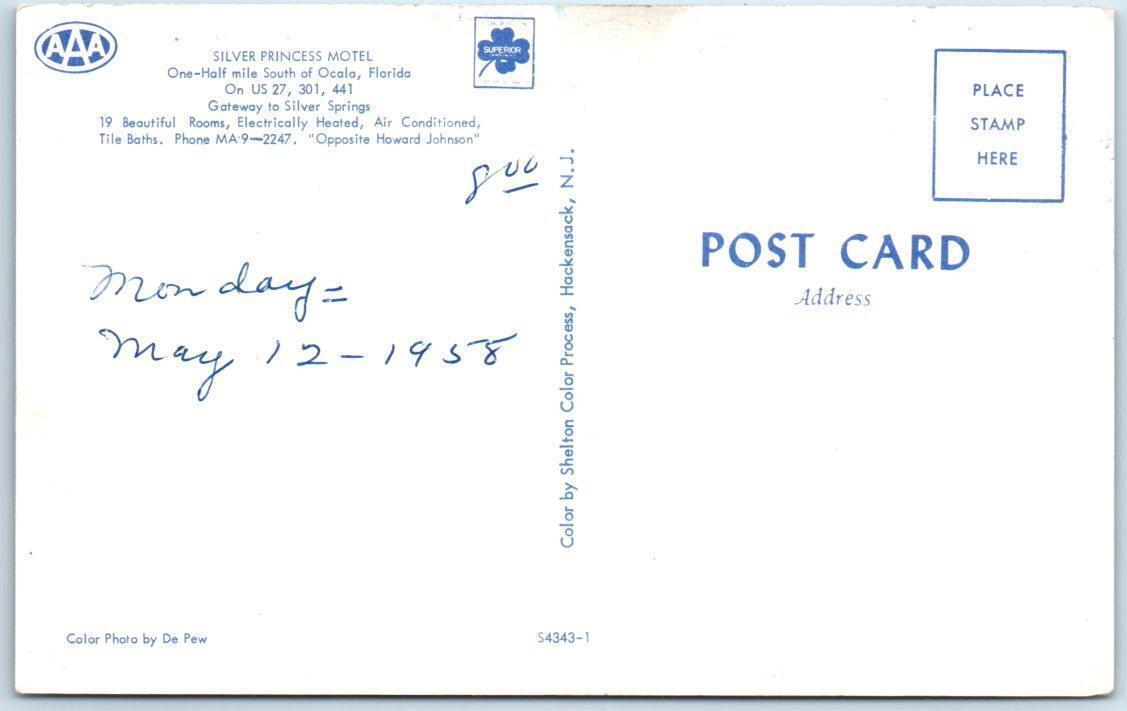 AAA
SILVER PRINCESS MOTEL
One-Half mile South of Ocala, Florida
On US 27, 301, 441
Gateway to Silver Springs
19 Beautiful Rooms, Electrically Heated, Air Conditioned,
Tile Baths. Phone MA 9—2247. "Opposite Howard Johnson"
SUPERIOR
8 00
Monday =
May 12 - 1958
Color by Shelton Color Process, Hackensack, N.J.
PLACE
STAMP
HERE
POST CARD
Address
Color Photo by De Pew
S4343-1